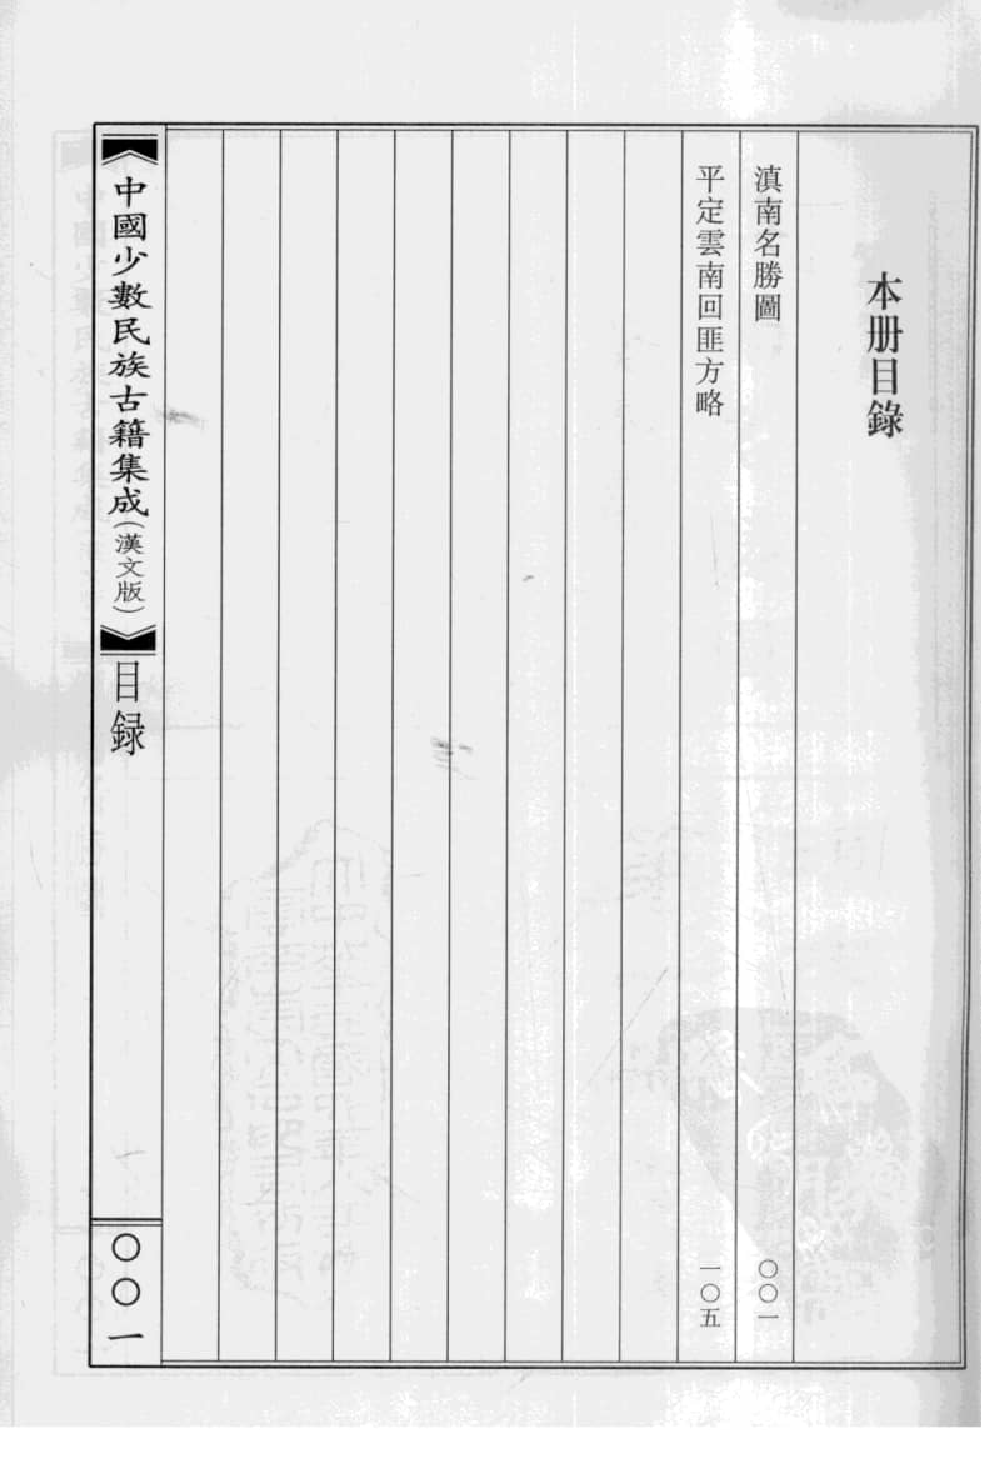 本册目錄
滇南名勝圖 〇〇一
平定雲南回匪方略 一〇五
中國少數民族古籍集成（漢文版）
目録
〇〇一